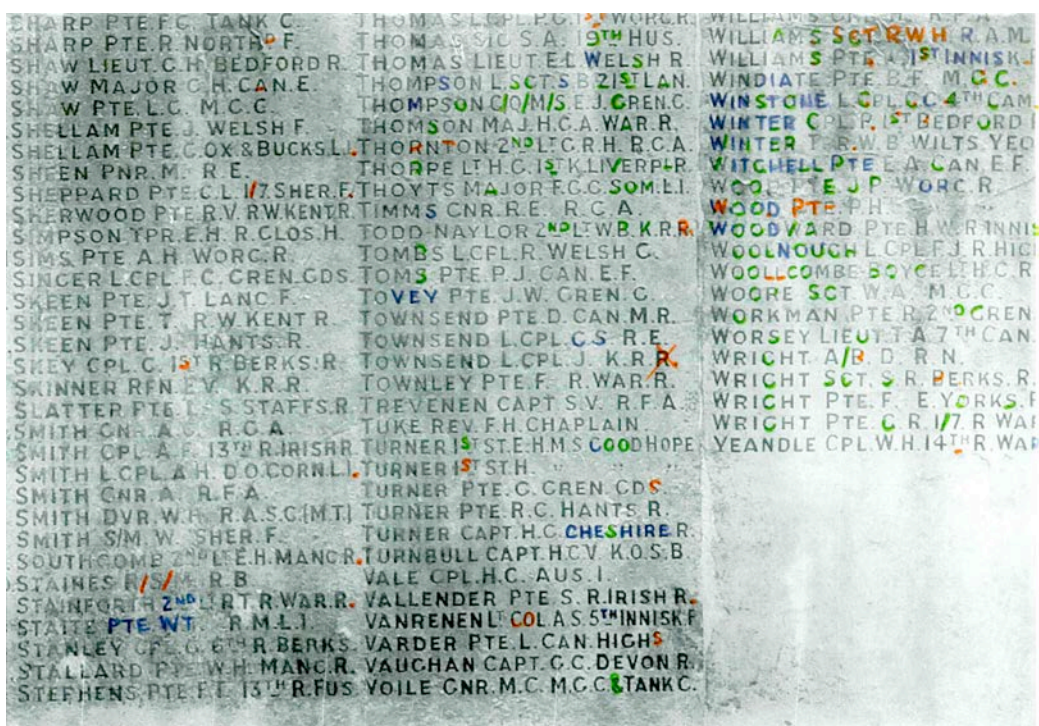 SHARP PTE F.C. TANK C.
SHARP PTE.R. NORTHP F.
SHAW LIEUT C.H. BEDFORD R.
SHAW MAJOR G.H. CAN.E.
SHAW PTE.L.G. M.G.C.
SHELLAM PTE J. WELSH F.
SHELLAM PTE.C. OX & BUCKS.L.I.
SHEEN PNR.M. R.E.
SHEPPARD PTE.C.L. 1/7.SHER.F.
SHERWOOD PTE.R.V. R.W.KENT.R.
SIMPSON TPR.E.H. R.GLOS.H.
SIMS PTE A.H. WORC.R.
SINGER L.CPL F.C. GREN.GDS
SKEEN PTE.J.T. LANC.F.
SKEEN PTE.T. R.W.KENT R.
SKEEN PTE.J. HANTS.R.
SKEY CPL C. 1ST R.BERKS.R.
SKINNER RFN.E.V. K.R.R.
SLATTER PTE. S.STAFFS.R.
SMITH GNR.A.G. R.G.A.
SMITH CPL A.F. 13TH R.IRISH R.
SMITH L.CPL.A.H. D.O.CORN.L.I.
SMITH GNR A. R.F.A.
SMITH DVR.W.H. R.A.S.C.(M.T.)
SMITH S/M.W. SHER.F.
SOUTHCOMB 2ND LT.E.H. MANC R.
STAINES R/S/M. R.B.
STAINFORTH 2ND LT R.T. R.WAR.R.
STAITE PTE.WT. R.M.L.I.
STANLEY CPL.G. 6TH R.BERKS.
STALLARD PTE W.H. MANC.R.
STEPHENS PTE.F.T. 13TH R.FUS
THOMAS L.CPL.P.G. 1ST WORC.R.
THOMAS SIG S.A. 19TH HUS.
THOMAS LIEUT E.L. WELSH R.
THOMPSON L.SGT S.B. 21ST LAN.
THOMPSON C/Q/M/S.E.J. GREN.G.
THOMSON MAJ.H.G.A. WAR.R.
THORNTON 2ND LT G.R.H. R.G.A.
THORPE LT H.G. 1ST K.LIVERP.R.
THOYTS MAJOR F.G.G. SOM.L.I.
TIMMS GNR.R.E. R.G.A.
TODD NAYLOR 2ND LT W.B. K.R.R.
TOMBS L.CPL.R. WELSH G.
TOMS PTE P.J. CAN.E.F.
TOVEY PTE.J.W. GREN.G.
TOWNSEND PTE.D. CAN.M.R.
TOWNSEND L.CPL. C S R.E.
TOWNSEND L.CPL.J. K.R.R.
TOWNLEY PTE.F. R.WAR.R.
TREVENEN CAPT S.V. R.F.A.
TUKE REV.F.H. CHAPLAIN.
TURNER 1ST ST.E. H.M.S GOODHOPE
TURNER 1ST ST.H. " " "
TURNER PTE.G. GREN.GDS.
TURNER PTE.R.C. HANTS R.
TURNER CAPT.H.C. CHESHIRE R.
TURNBULL CAPT.H.C.V. K.O.S.B.
VALE CPL.H.C. AUS.I.
VALLENDER PTE S. R.IRISH R.
VANRENEN LT COL A.S. 5TH INNISK.F
VARDER PTE.L. CAN.HIGHS
VAUGHAN CAPT.G.C. DEVON R.
VOILE GNR.M.C. M.G.C. & TANK C.
WILLIAMS R.F.A.
WILLIAMS SGT RWH R.A.M.
WILLIAMS PTE. 1ST INNISK.F
WINDIATE PTE B.F. M.G.C.
WINSTONE L.CPL.G.G. 4TH CAM
WINTER CPL.P. 1ST BEDFORD
WINTER T.R.W.B. WILTS YEO
WITCHELL PTE E.A. CAN.E.F.
WOOD PTE J P. WORC R.
WOOD PTE P.H.
WOODWARD PTE H.W. R.INNIS
WOOLNOUGH L.CPL.F.J. R.HIG
WOOLLCOMBE-BOYCE LT H.C. R
WOORE SGT W.A. M.G.C.
WORKMAN PTE R. 2ND GREN
WORSEY LIEUT.T.A. 7TH CAN.
WRIGHT A/B.D. R.N.
WRIGHT SGT. S R. BERKS.R.
WRIGHT PTE.F. E.YORKS.F
WRIGHT PTE.G.R. 1/7. R WAR
YEANDLE CPL.W.H. 14TH R.WAR